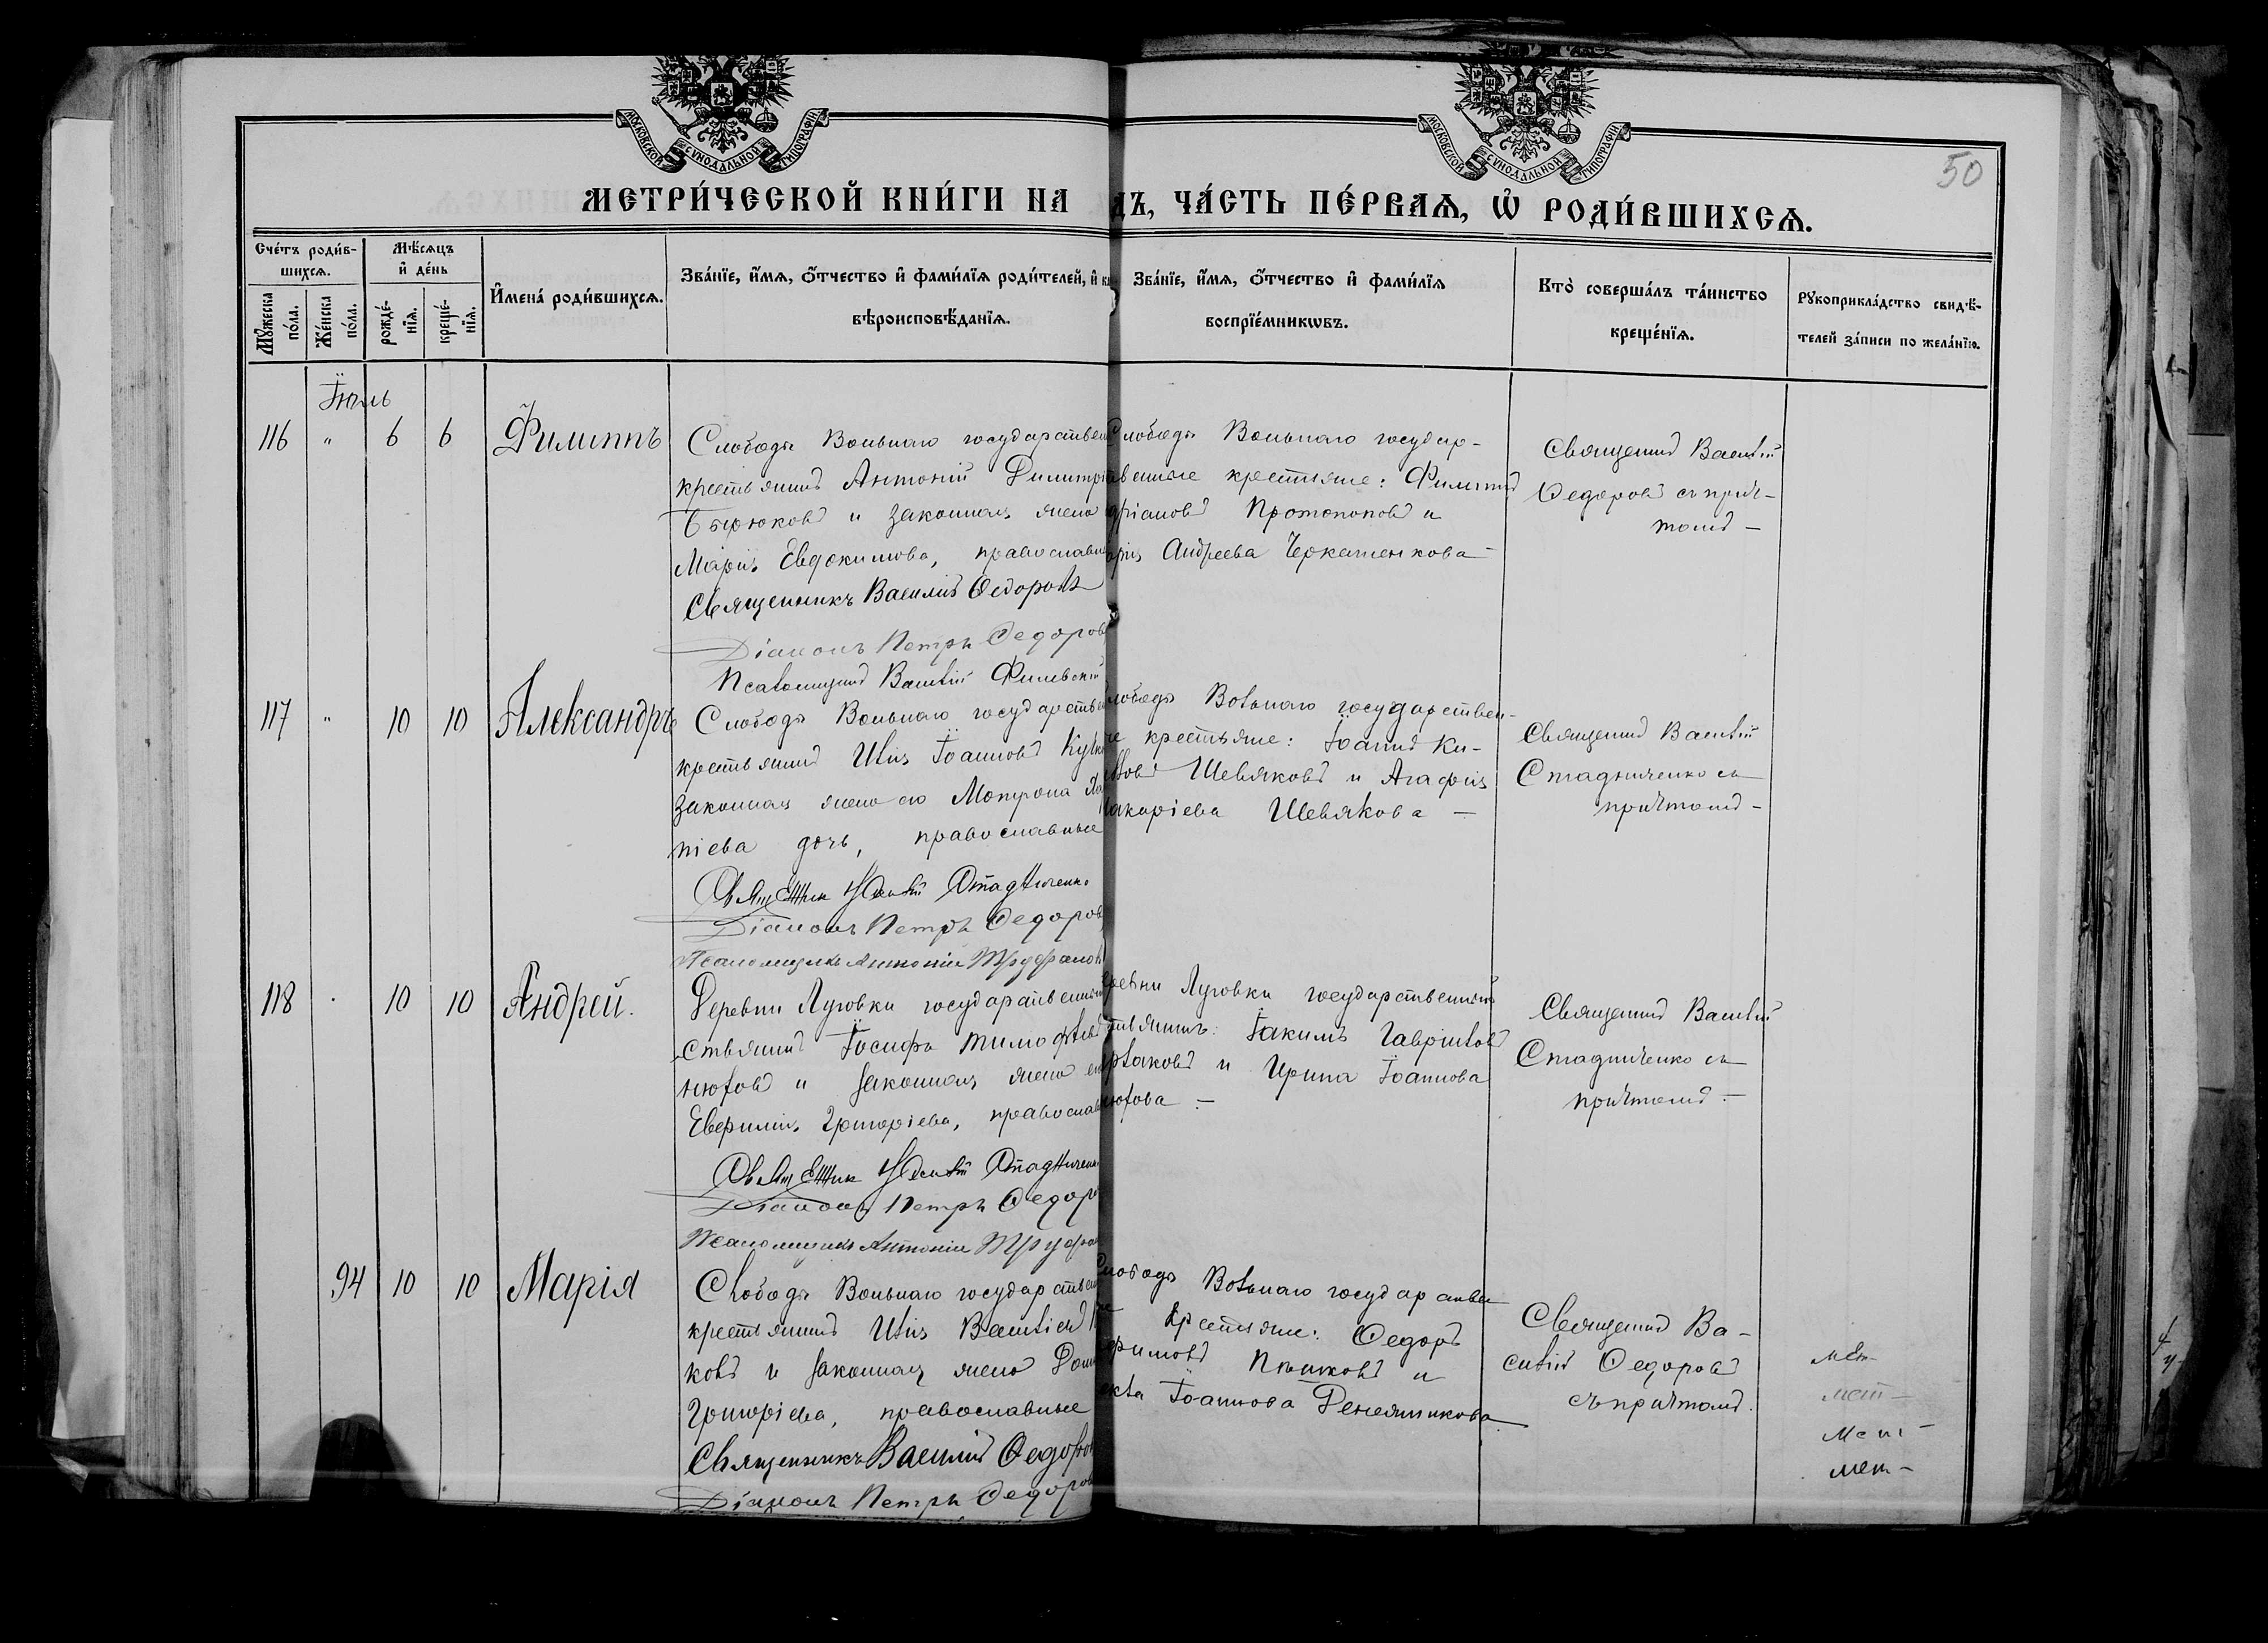 МОСКОВСКОЙ СѴНОДАЛЬНОЙ ТИПОГРАФІИ
МОСКОВСКОЙ СѴНОДАЛЬНОЙ ТИПОГРАФІИ
50
МЕТРИ́ЧЕСКОЙ КНИ́ГИ НА
ДЪ, ЧА́СТЬ ПЕ́РВАѦ, Ѡ РОДИ́ВШИХСѦ.
Сче́тъ роди́в-
шихсѧ.
Мѣ́сѧцъ
и҆ де́нь
Мꙋ́жеска
по́ла.
Же́нска
по́ла.
рожде́-
нїѧ.
креще́-
нїѧ.
И҆мена̀ роди́вшихсѧ.
Зва́нїе, и҆́мѧ, ѻ҆́тчество и҆ фами́лїѧ роди́телей, и҆
вѣроисповѣ́данїѧ.
Зва́нїе, и҆́мѧ, ѻ҆́тчество и҆ фами́лїѧ
воспрїе́мникѡвъ.
Кто̀ соверша́лъ та́инство
креще́нїѧ.
Рꙋкоприкла́дство свидѣ́-
телей за́писи по жела́нїю.
Іюль
116 " 6 6 Филиппъ
Слободы Вольнаго государствен
крестьянинъ Антоній Димитрі
Бирюковъ и законная жена
Марія Евдокимова, православн
Священникъ Василій Ѳедоровъ
Діаконъ Петръ Ѳедоровъ
Псаломщикъ Василій Фильвскій
слободы Вольнаго государ-
твенные крестьяне: Филиппъ
дріановъ Протопоповъ и
арія Андреева Черкашенкова
Священникъ Василій
Ѳедоровъ съ прич-
томъ –
117 " 10 10 Александръ
Слободы Вольнаго государствен
крестьянинъ Илія Іоанновъ
законная жена его Матрона
піева дочь, православные
Священник Василій Стадниченко
Діаконъ Петръ Ѳедоровъ
Псаломщикъ Антоній Труфановъ
лободы Вольнаго государствен-
ые крестьяне: Іоаннъ Ки-
ловъ Шевяковъ и Агафія
акаріева Шевякова –
Священникъ Василій
Стадниченко съ
причтомъ –
118 10 10 Андрей.
Деревни Луговки государственны
стьянинъ Іосифъ Тимофѣевъ
нютовъ и законная жена его
Евфимія Григоріева, православ
Священник Василій Стадниченко
Діаконъ Петръ Ѳедоров
Псаломщикъ Антоній Труфан
еревни Луговки государственный
стьянинъ: Іакимъ Гавріиловъ
ртаковъ и Ирина Іоаннова
нютова –
Священникъ Василій
Стадниченко съ
причтомъ –
94 10 10 Марія
Слободы Вольнаго государствен
крестьянинъ Илія Васильевъ
ковъ и законная жена
Григоріева, православные
Священникъ Василій Ѳедоров
Діаконъ Петръ Ѳедоровъ
Слободы Вольнаго государствен
ые крестьяне: Ѳедоръ
фимовъ и
екла Іоаннова Денежникова
Священникъ Ва-
силій Ѳедоровъ
съ причтомъ.
мет–
мет–
мет–
мет–